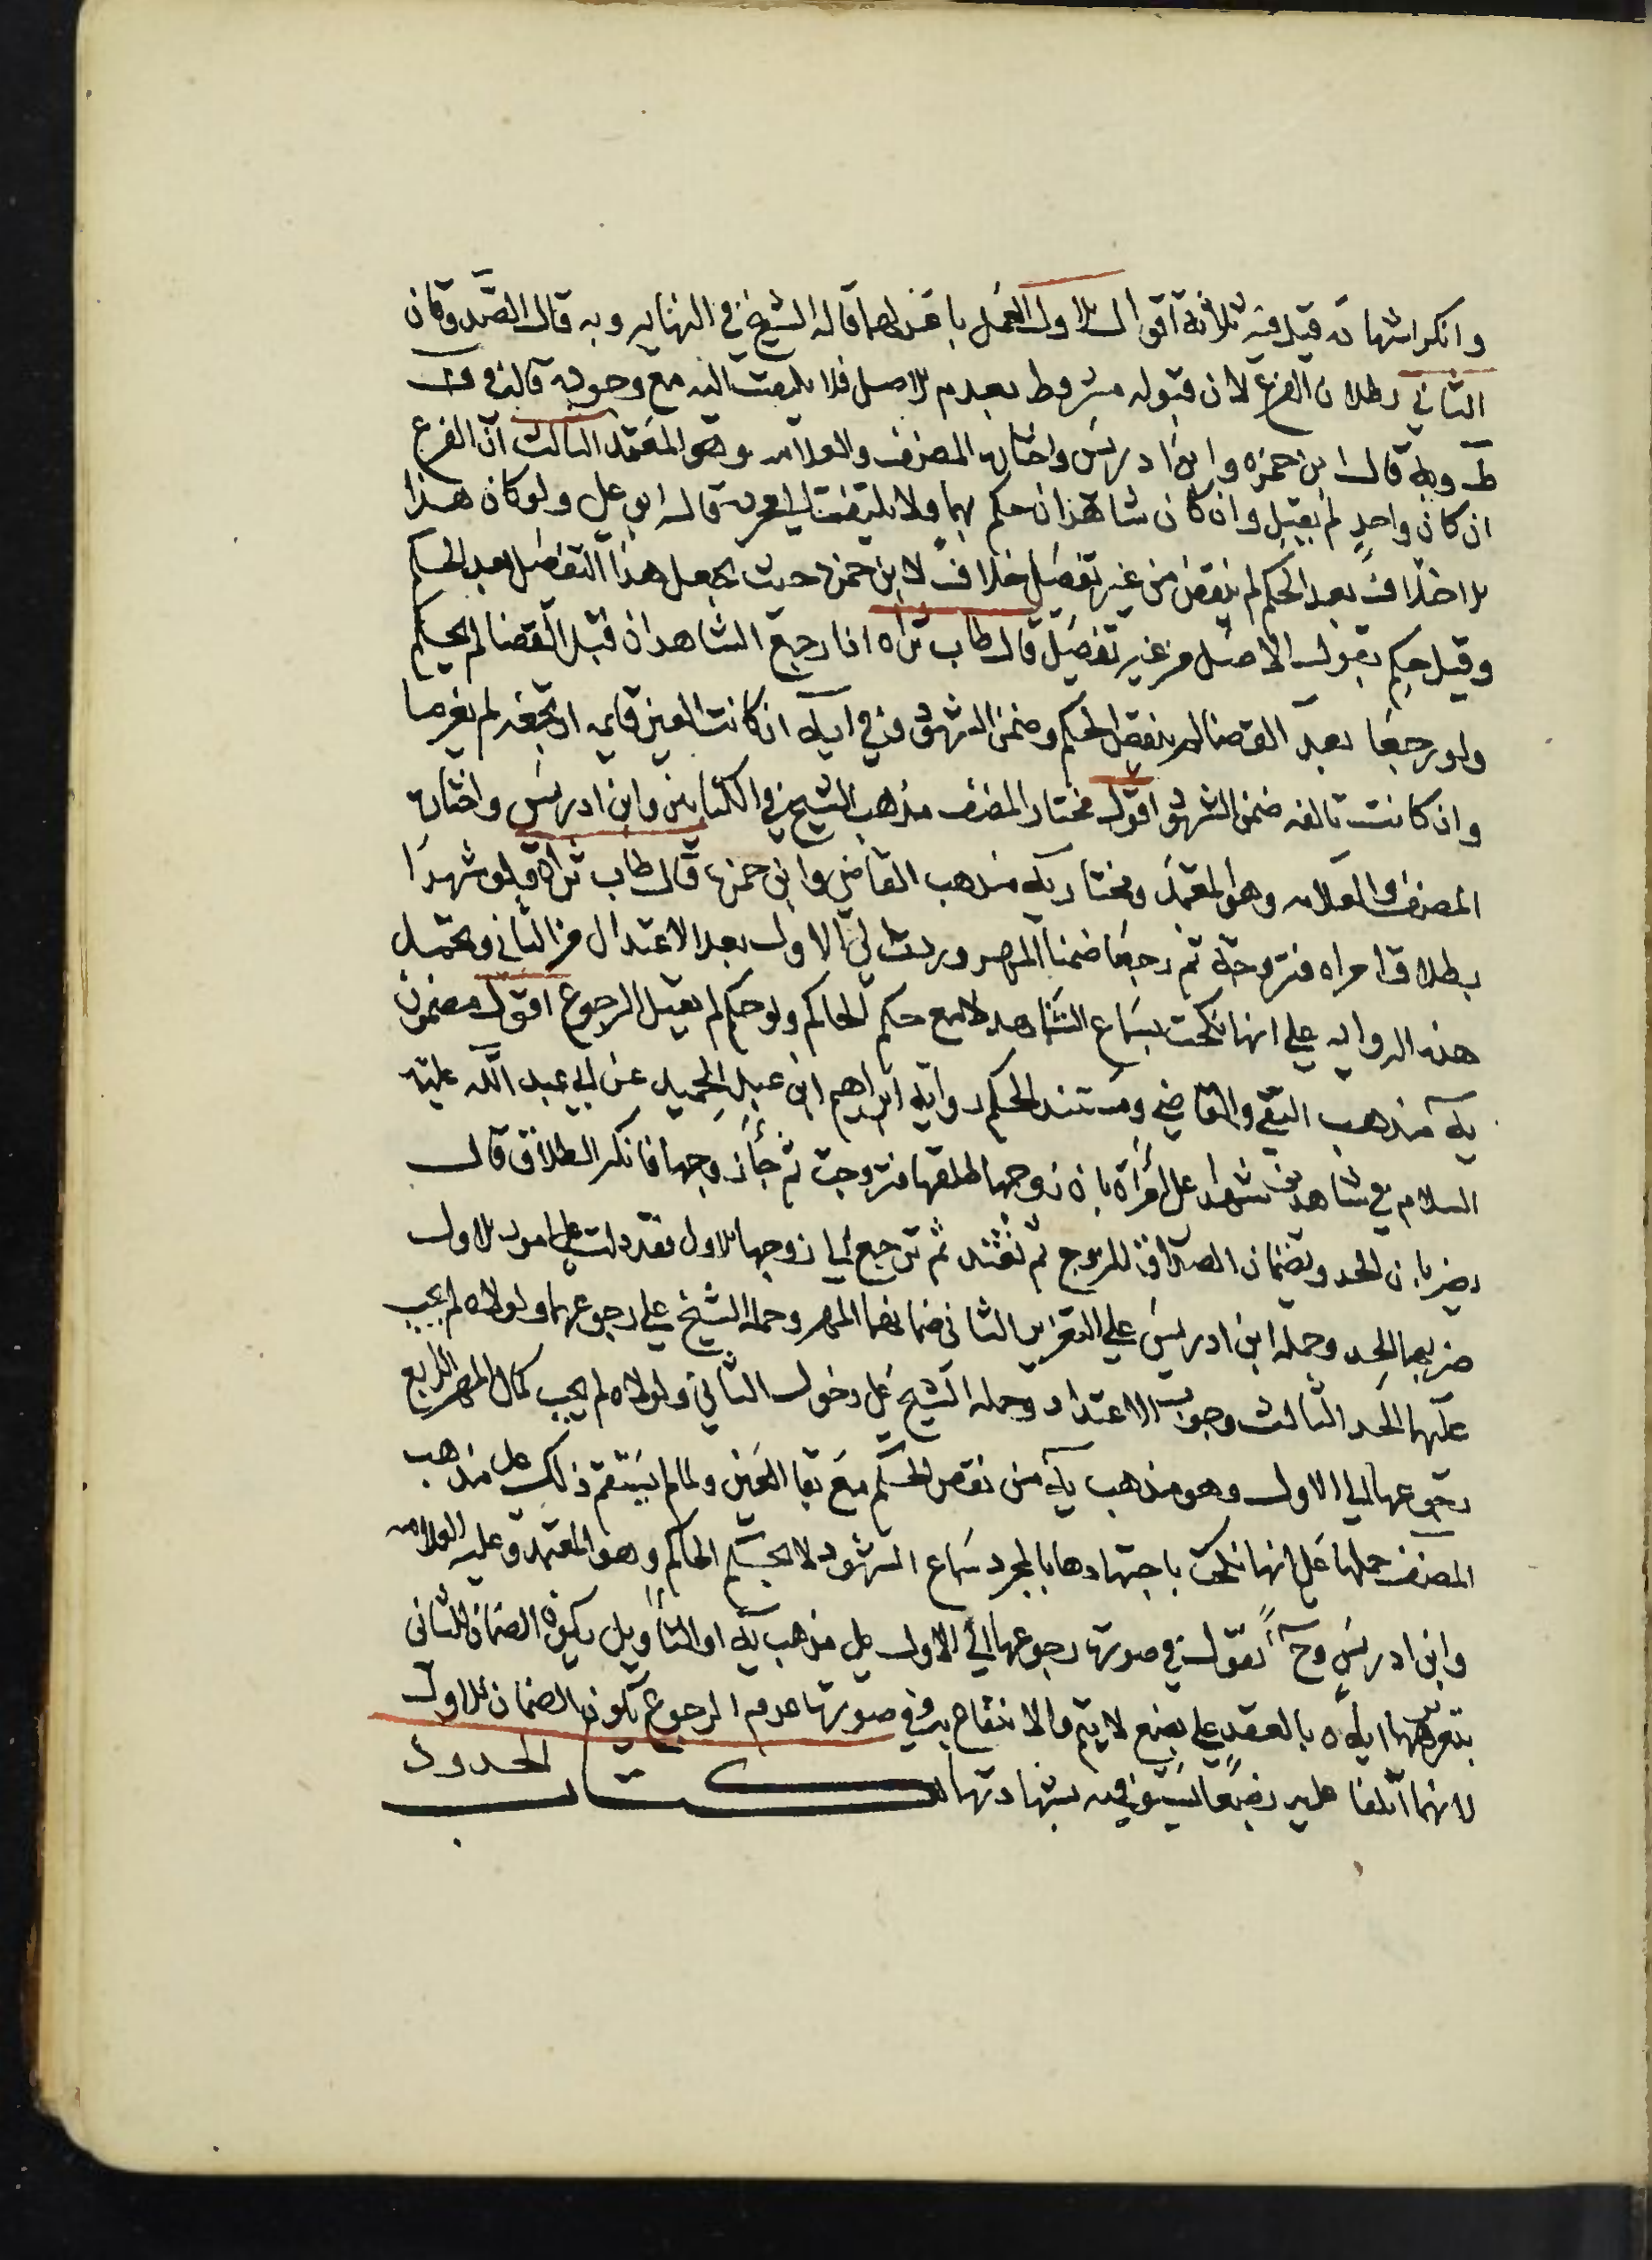 وانكر اشهاده قيل فيه ثلاثة اقوال الاول العمل باعدلهما قاله الشيخ في النهايه وبه قال الصدوقان
الثاني بطلان الفرع لان قبوله مشروط بعدم الاصل فلا يلتفت اليه مع وجوده قاله في
ط وبه قال ابن حمزه وابن ادريس واختاره المصنف والعلامه وهو المعتمد الثالث ان الفرع
ان كان واحد لم يقبل وان كان شاهدان حكم بهما ولا يلتفت الى قاله ابو علي ولو كان هذا
الاختلاف بعد الحكم لم ينقض من غير تفصيل خلافا لابن حمزه حيث جعل هذا التفصيل بعد الحكم
وقبل حكم بقول الاصل من غير تفصيل قال طاب ثراه اذا رجع الشاهدان قبل القضا لم يحكم
ولو رجعا بعد القضا لم ينقض الحكم وضمن الشهود وفي يه ان كانت العين قايمه ارتجعت ولم يغرما
وان كانت تالفه ضمن الشهود اقول مختار المصنف مذهب الشيخ في الكتابين وابن ادريس واختاره
المصنف والعلامه وهو المعتمد ومختار يه مذهب القاضي وابن حمزه قال طاب ثراه فلو شهدا
بطلاق امراه فتزوجت ثم رجعا ضمنا المهر وردت الى الاول بعد الاعتداد من الثاني ويحتمل
هذه الروايه علي انها نكحت بسماع الشاهد لا مع حكم الحاكم ولو حكم لم يقبل الرجوع اقول مضمون
يه مذهب التقي والقاضي ومستند الحكم رواية ابراهيم ابن عبد الحميد عن ابي عبد الله عليه
السلام في شاهدين شهدا على امرأة بان زوجها طلقها فتزوجت ثم جأ زوجها فانكر الطلاق قال
يضربان الحد ويضمنان الصداق للزوج ثم تعتد ثم ترجع الى زوجها الاول فقد دلت على امور الاول
ضربهما الحد وحمله ابن ادريس على التعزير الثاني ضمانهما المهر وحمله الشيخ علي رجوعهما ولولاه لم يجب
عليهما الحد الثالث وجوب الاعتداد وحمله الشيخ على دخول الثاني ولولاه لم يجب كمال المهر الرابع
رجوعها الى الاول وهو مذهب يه من نقض الحكم مع بقا العين ولما لم يستقم ذلك على مذهب
المصنف حملها على انها نكحت باجتهادها بالمجرد سماع الشهود لا بحكم الحاكم وهو المعتمد وعليه العلامه
وابن ادريس وح نقول في صورة رجوعها الى الاول على مذهب يه او التأويل يكون الضمان للثاني
بتعريضهما اياه بالعقد على بضع لا يتم والا انتفاع به وفي صورة عدم الرجوع يكون الضمان للاول
لانهما اتلفا عليه بضعا بشهادتهما كتاب الحدود